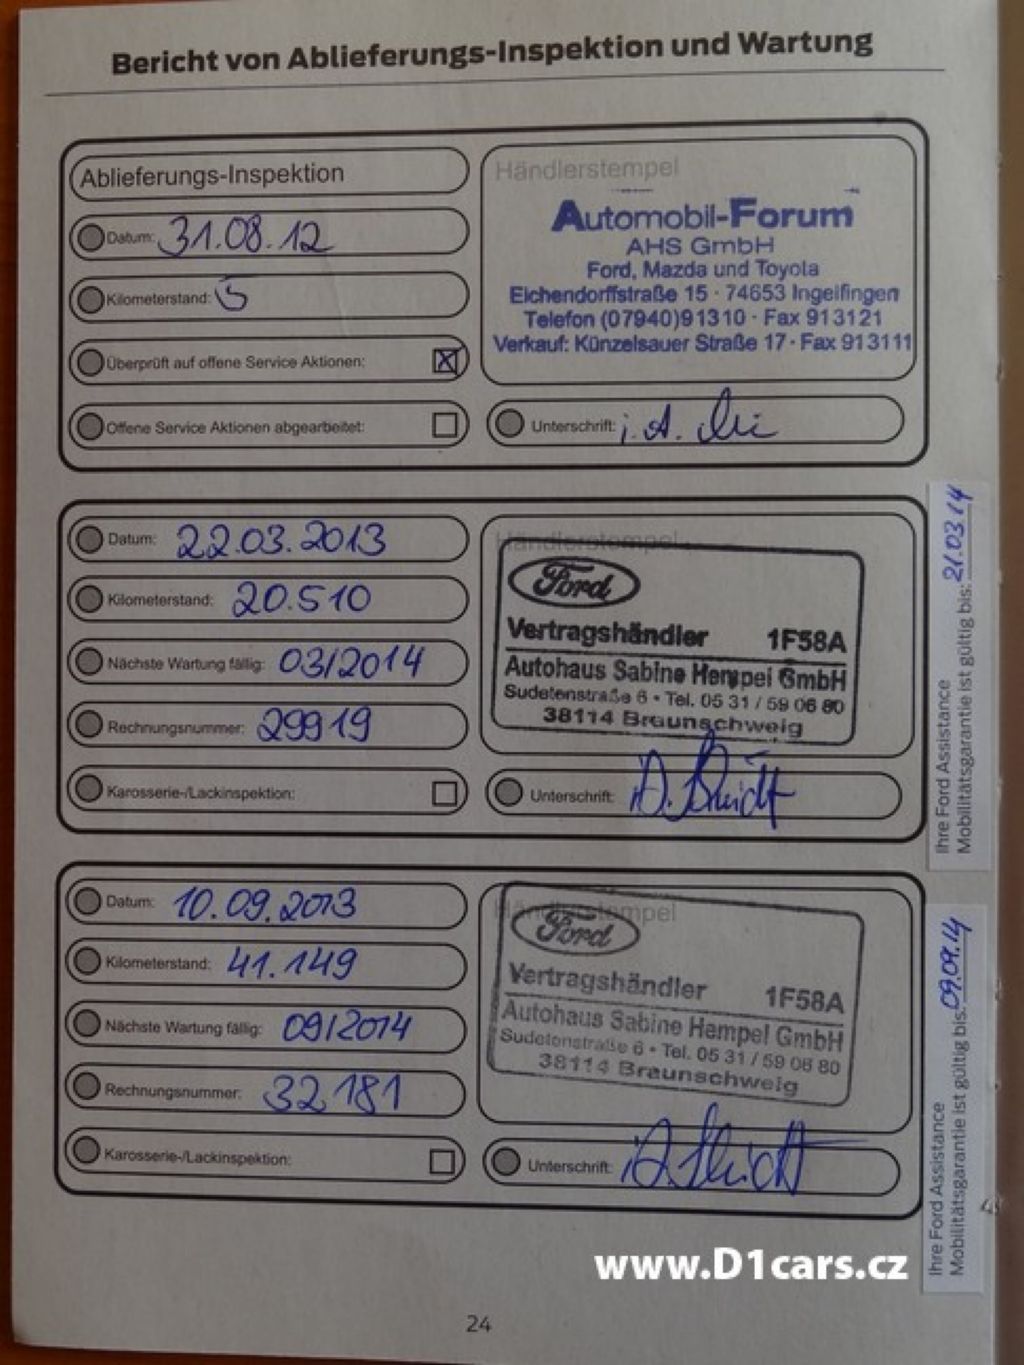 Bericht von Ablieferungs-Inspektion und Wartung
Ablieferungs-Inspektion
Datum: 31.08.12
Kilometerstand: 5
Überprüft auf offene Service Aktionen: X
Offene Service Aktionen abgearbeitet:
Händlerstempel
Automobil-Forum
AHS GmbH
Ford, Mazda und Toyota
Eichendorffstraße 15 · 74653 Ingelfingen
Telefon (07940) 91310 · Fax 913121
Verkauf: Künzelsauer Straße 17 · Fax 913111
Unterschrift: i.A.
Datum: 22.03.2013
Kilometerstand: 20.510
Nächste Wartung fällig: 03/2014
Rechnungsnummer: 29919
Karosserie-/Lackinspektion:
Händlerstempel
Ford
Vertragshändler 1F58A
Autohaus Sabine Hempel GmbH
Sudetenstraße 6 • Tel. 05 31 / 59 06 80
38114 Braunschweig
Unterschrift:
Ihre Ford Assistance
Mobilitätsgarantie ist gültig bis: 21.03.14
Datum: 10.09.2013
Kilometerstand: 41.149
Nächste Wartung fällig: 09/2014
Rechnungsnummer: 32181
Karosserie-/Lackinspektion:
Händlerstempel
Ford
Vertragshändler 1F58A
Autohaus Sabine Hempel GmbH
Sudetenstraße 6 • Tel. 05 31 / 59 06 80
38114 Braunschweig
Unterschrift:
Ihre Ford Assistance
Mobilitätsgarantie ist gültig bis: 09.09.14
www.D1cars.cz
24